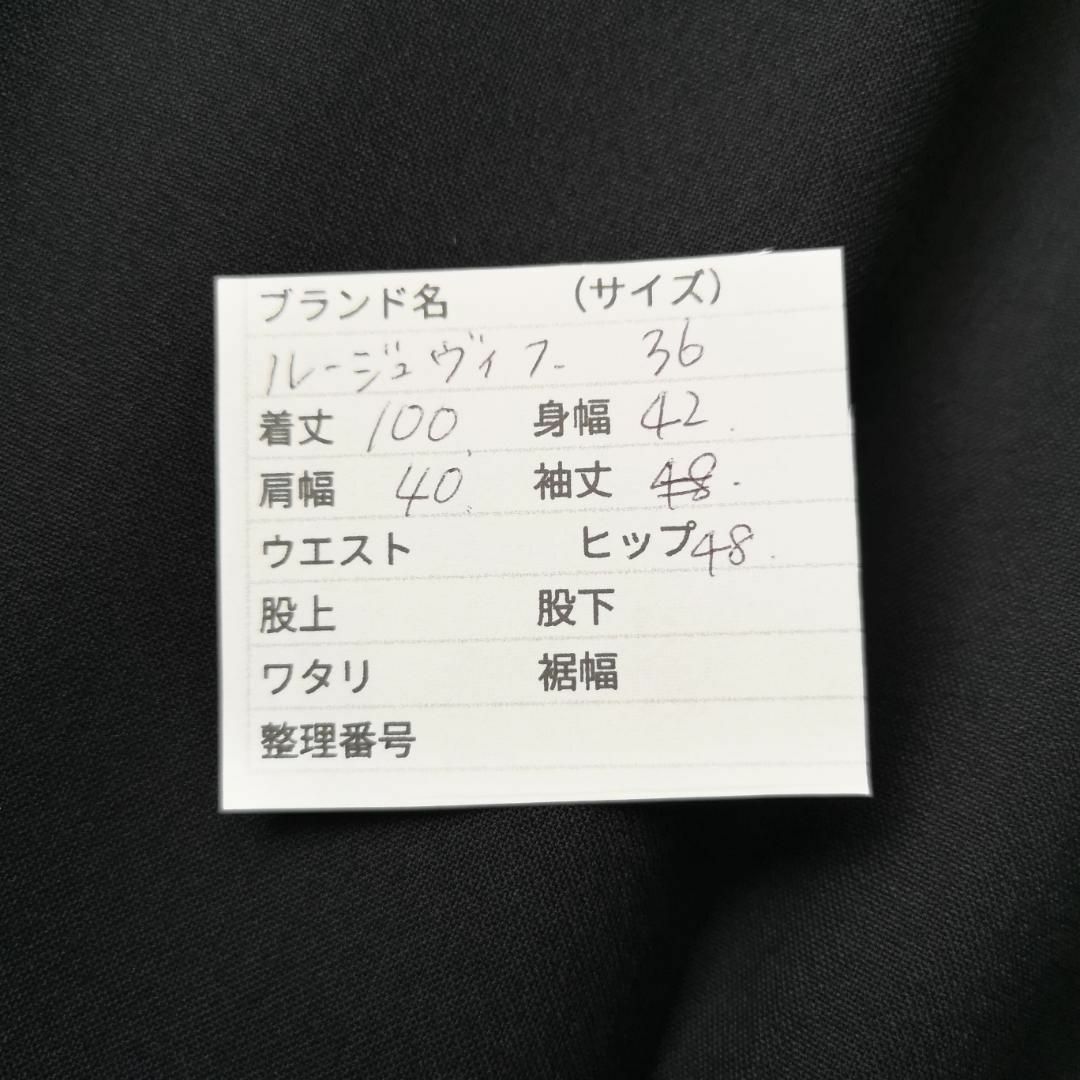 ブランド名 (サイズ)
ルージュヴィフ 36
着丈 100 身幅 42
肩幅 40 袖丈 48
ウエスト ヒップ 48
股上 股下
ワタリ 裾幅
整理番号